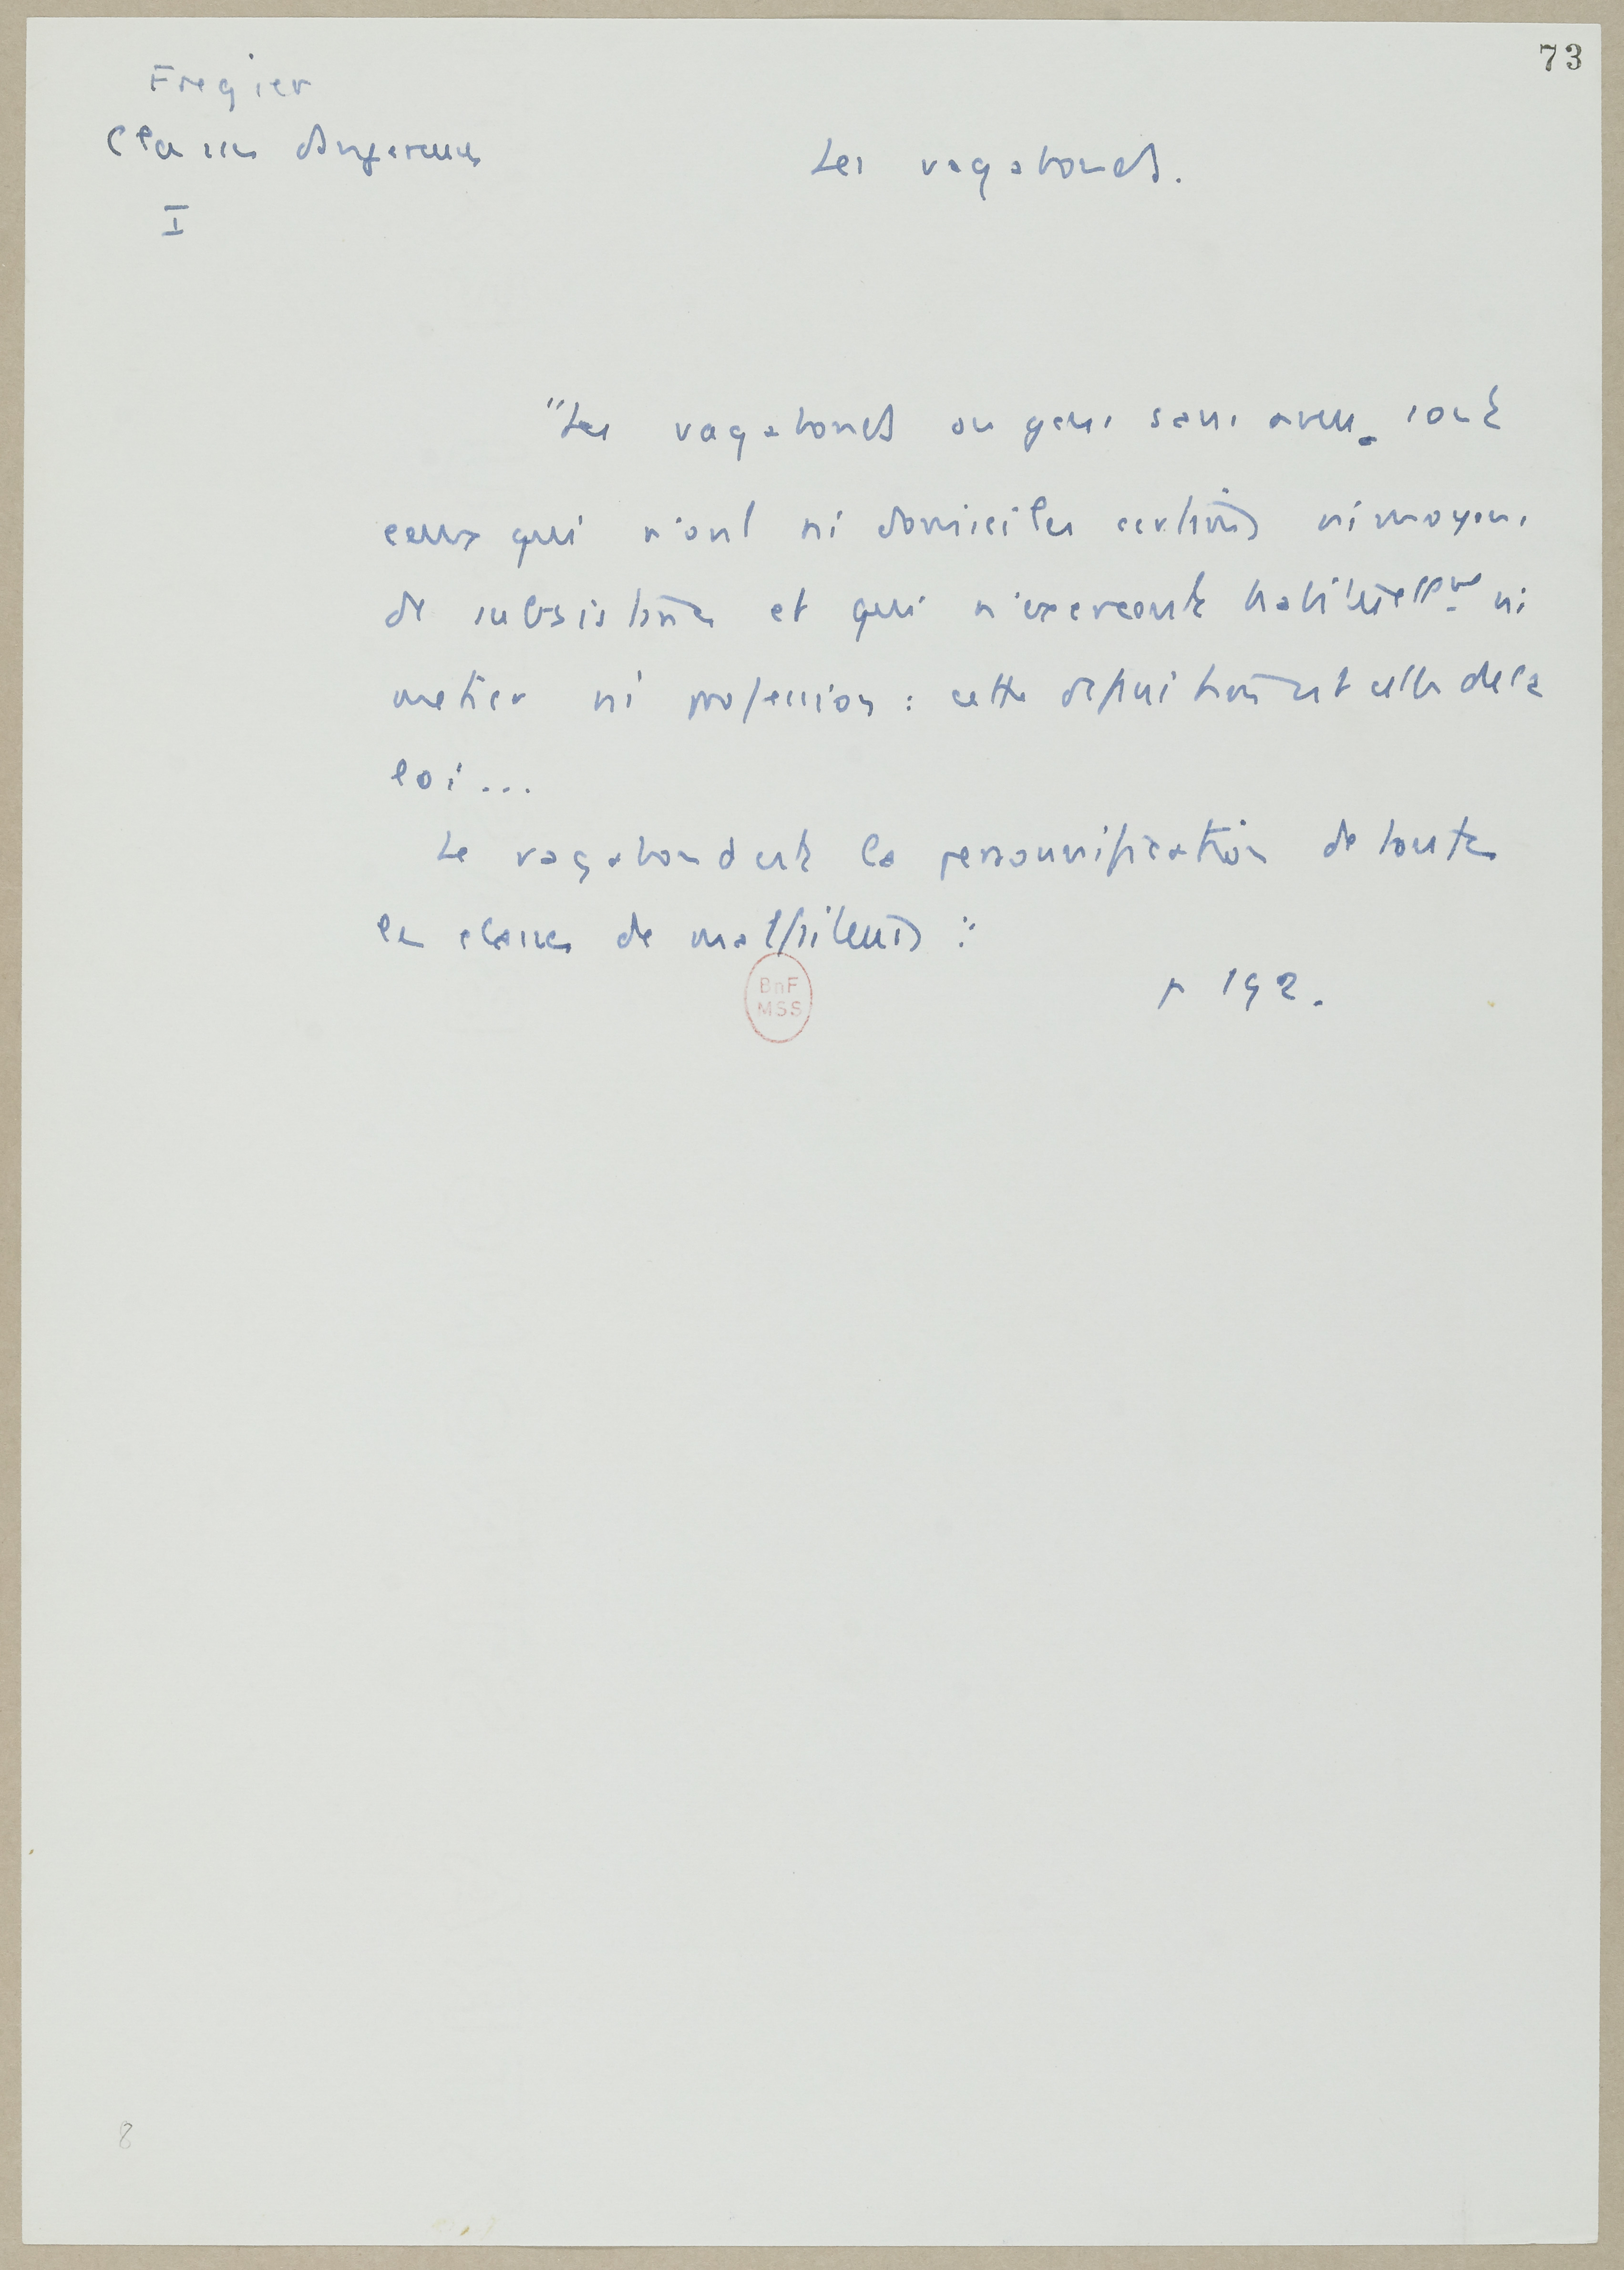 73
Fregier
Classes dangereuses
I
Les vagabonds.
"Les vagabonds ou gens sans aveu sont
ceux qui n'ont ni domiciles certains ni moyens
de subsistance et qui n'exercent habituellement ni
metier ni profession : cette definition est celle de la
loi...
Le vagabond est la personnification de toutes
les classes de malfaiteurs :"
p 192.
BnF
MSS
8